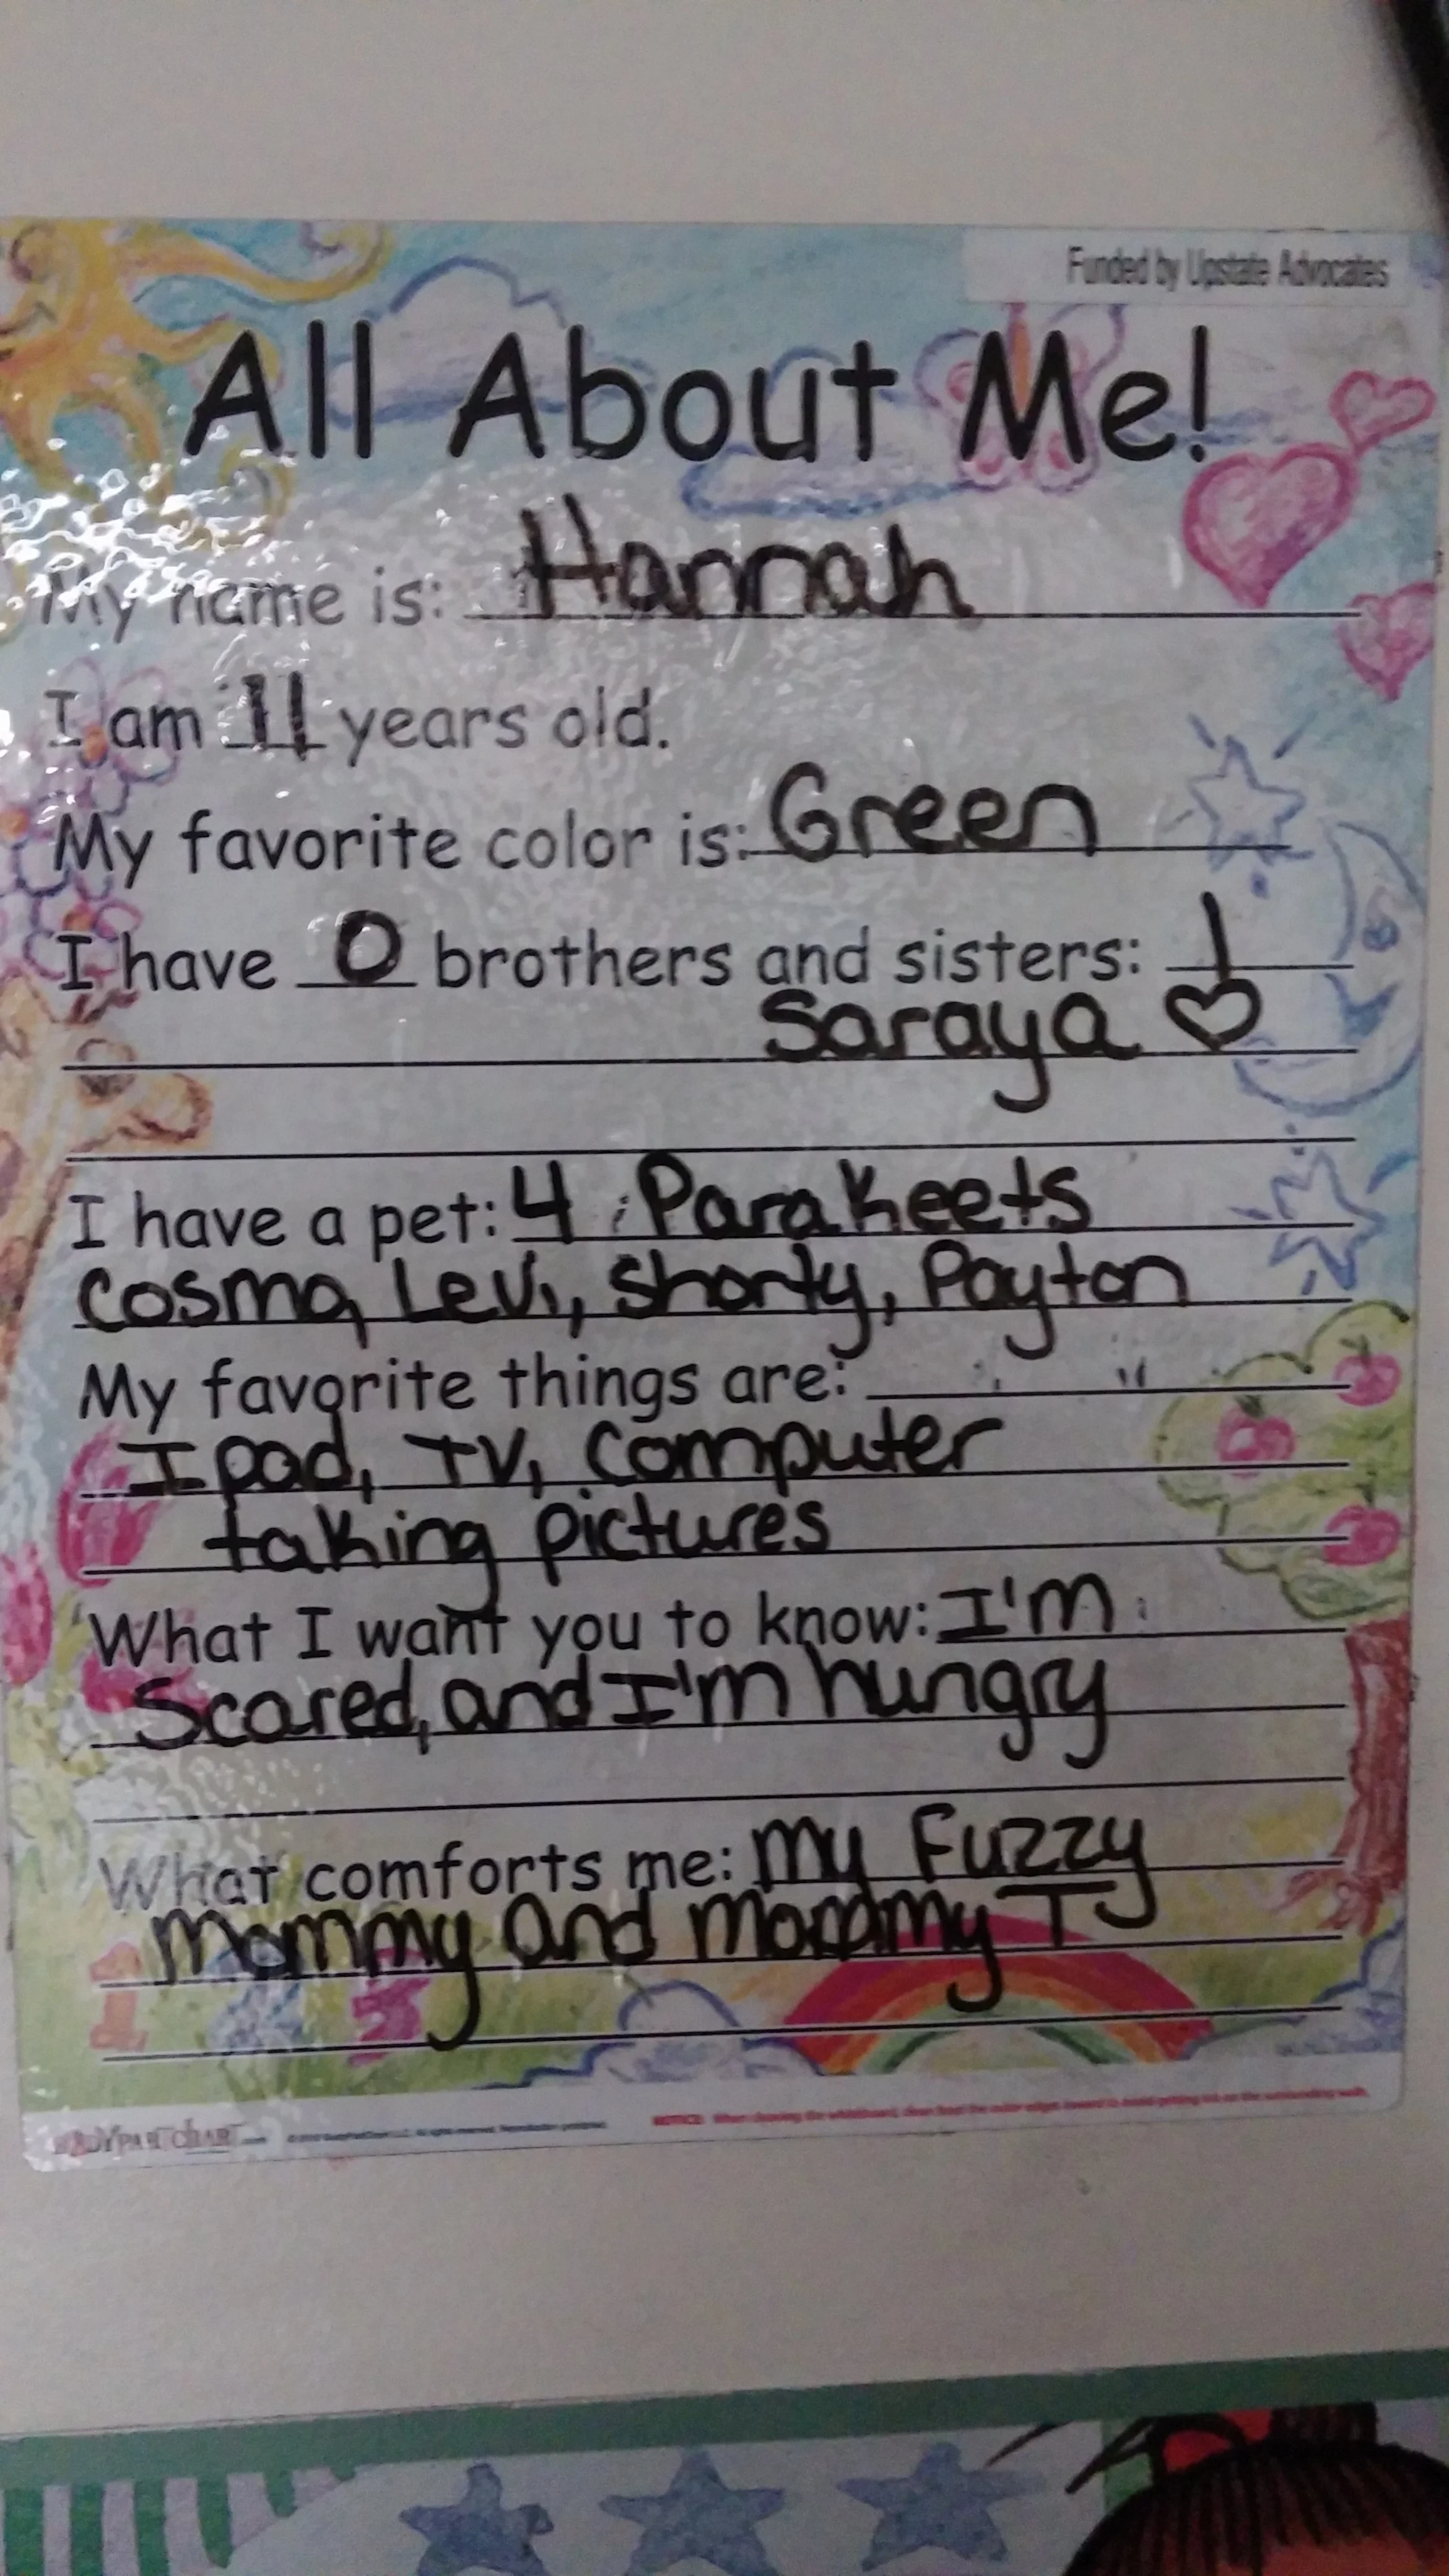 Funded by Upstate Advocates
All About Me!
My name is: Hannah
I am 11 years old.
My favorite color is: Green
I have 0 brothers and sisters: 1
Saraya ♡
I have a pet: 4 Parakeets
Cosmo, Levi, Shorty, Payton
My favorite things are:
Ipad, TV, Computer
taking pictures
What I want you to know: I'm
Scared, and I'm hungry
What comforts me: my Fuzzy
mommy and mommy TJ
NOTICE: